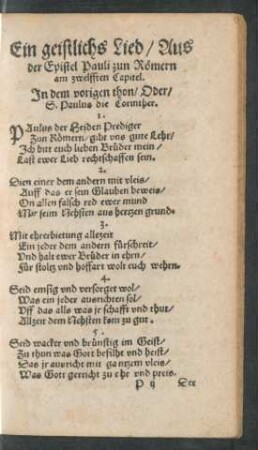 Ein geistlichs Lied / Aus
der Epistel Pauli zun Römern
am zwelfften Capitel.
In dem vorigen thon / Oder /
S. Paulus die Corinther.
1.
PAulus der Heiden Prediger
Zun Römern / gibt vns gute Lehr /
Ich bitt euch lieben Brüder mein /
Last ewer Lieb rechtschaffen sein.
2.
Dien einer dem andern mit vleis /
Auff das er sein Glauben beweis /
On allen falsch red ewer mund
Mit seim Nehsten aus hertzen grund.
3.
Mit ehrerbietung allezeit
Ein jeder dem andern fürschreit /
Vnd halt ewr Brüder in ehrn /
Für stoltz vnd hoffart wolt euch wehrn.
4.
Seid emsig vnd versorget wol /
Was ein jeder ausrichten sol /
Vff das als was jr schafft vnd thut /
Allzeit dem Nehsten kom zu gut.
5.
Seid wacker vnd brünstig im Geist /
Zu thun was Gott befilht vnd heist /
Das jr ausricht mit gantzem vleis /
Was Gott gereicht zu ehr vnd preis.
P ij